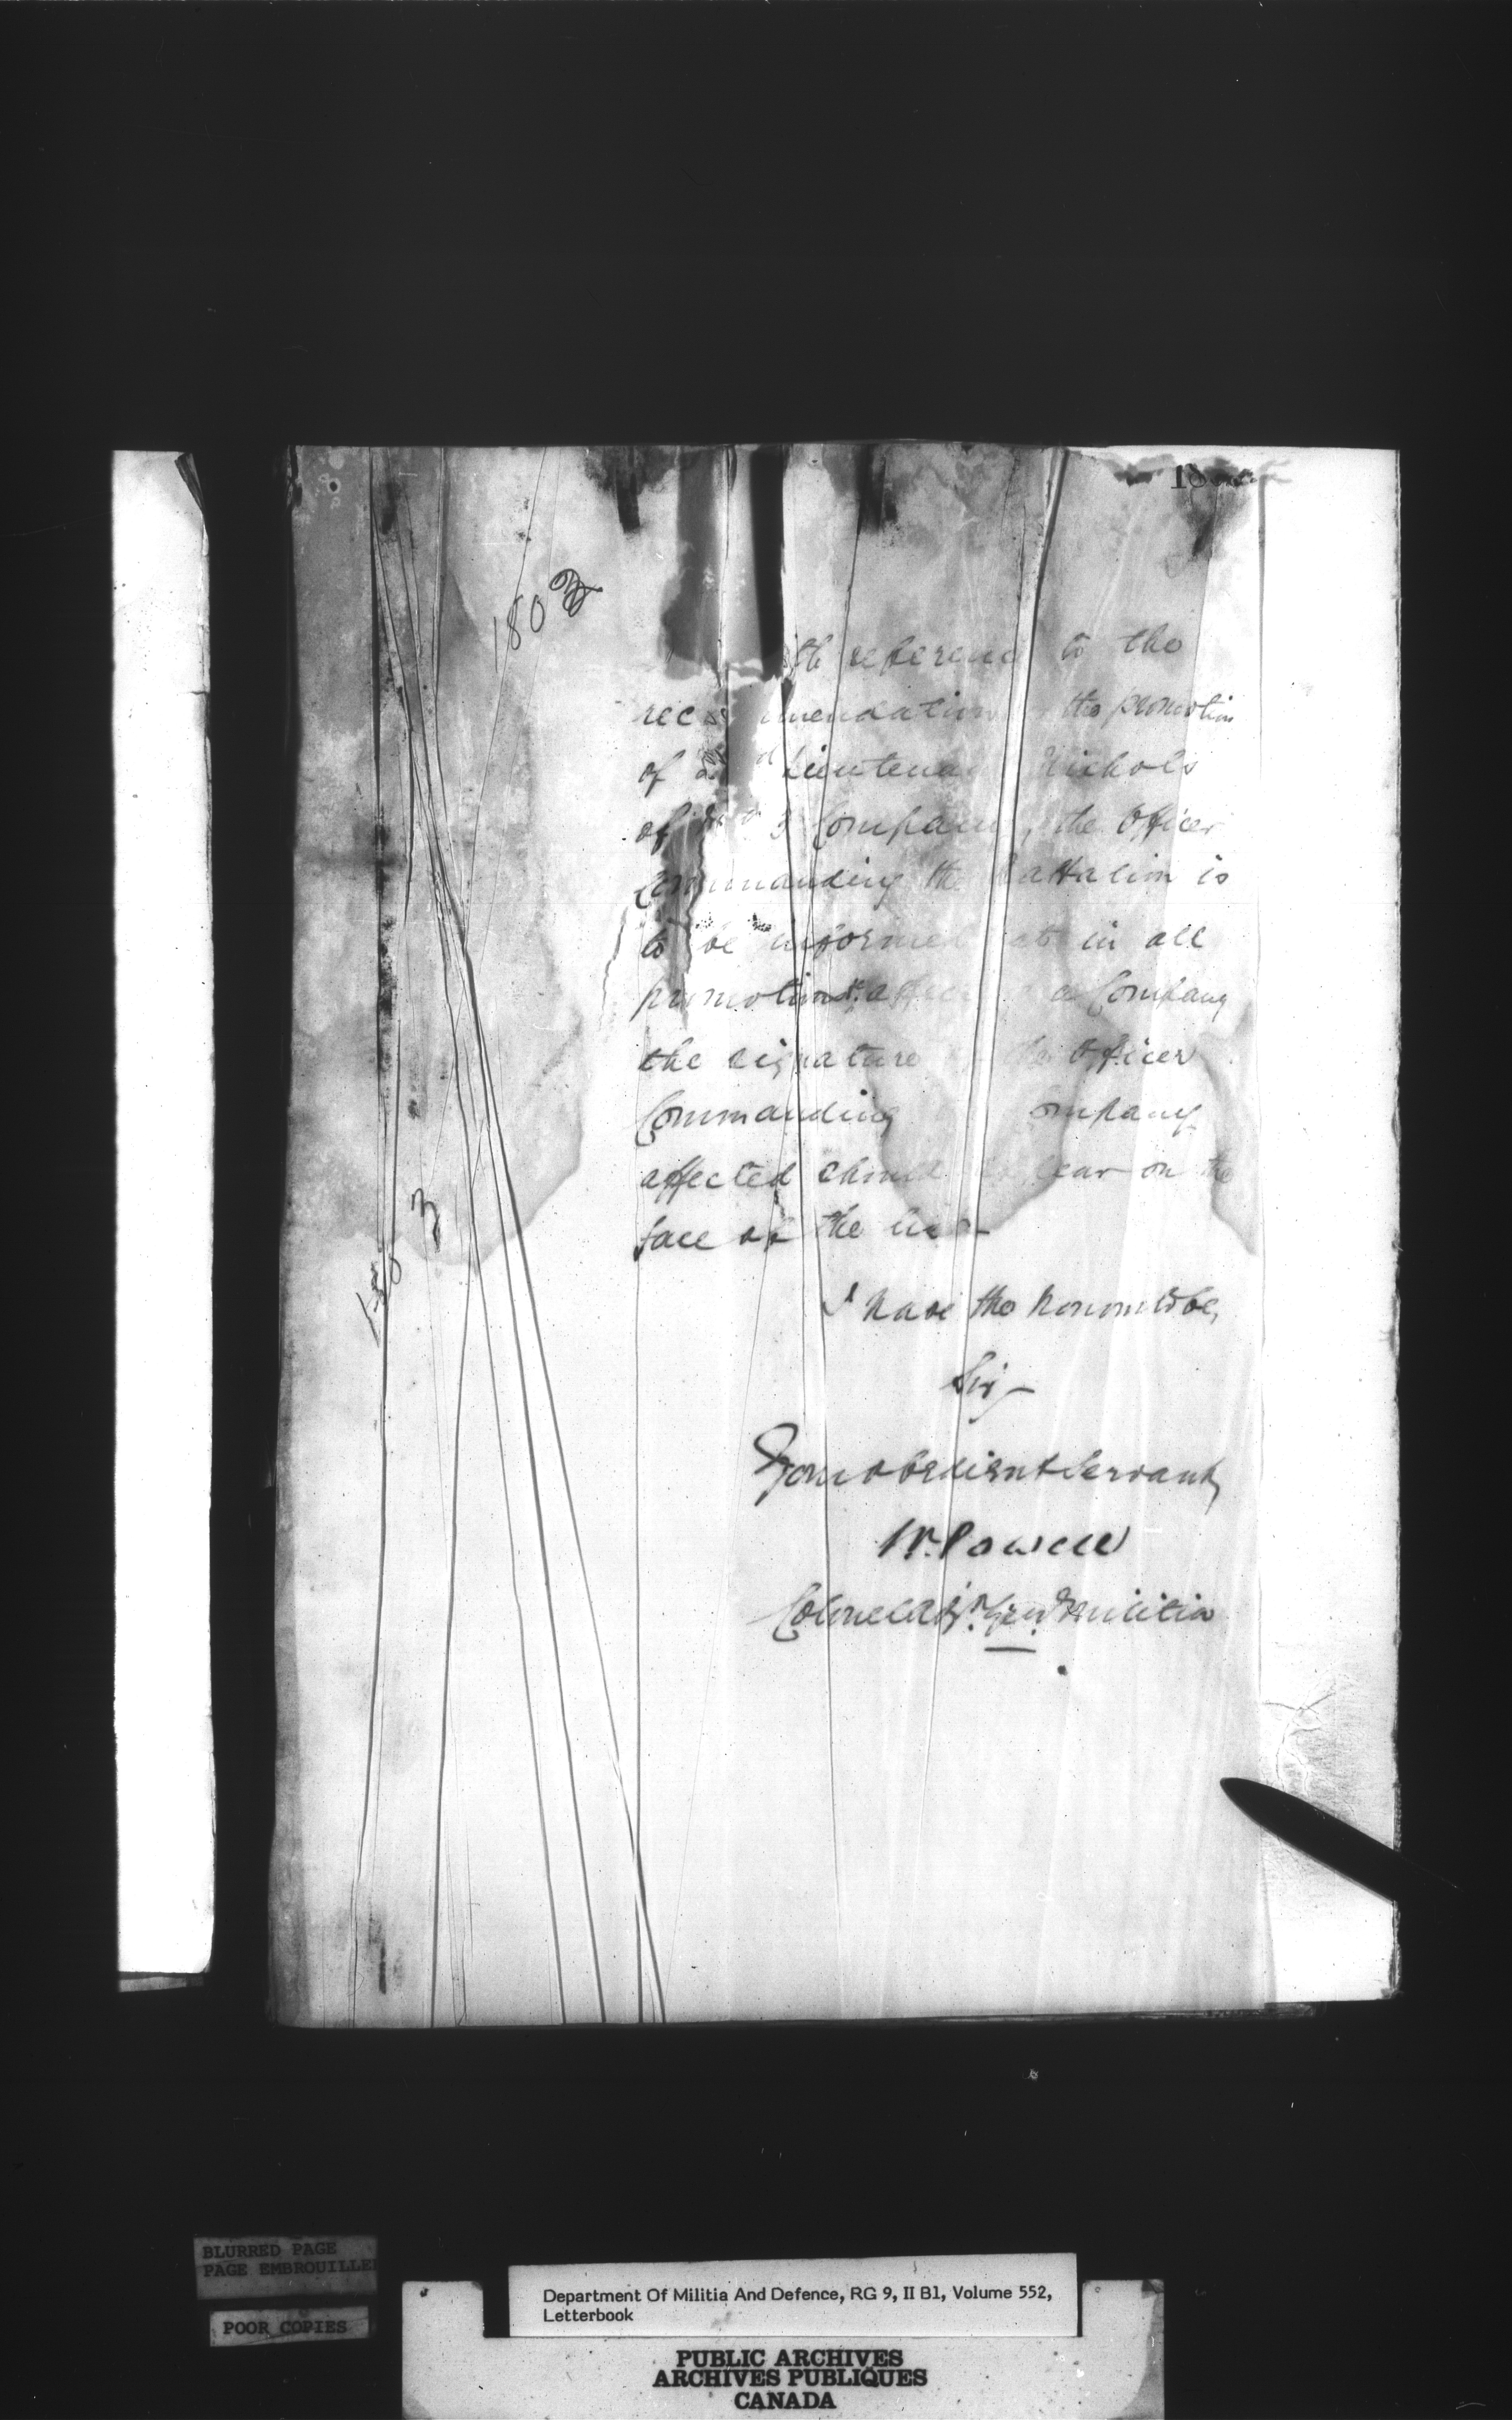 18
1802
th reference to the
recommendation the promotion
of Lieutenant Nichols
of 3 Company, the Officer
Commanding the Battalion is
to be informed at in all
promotions a Company
the signature the Officer
Commanding ompany
affected should ear on the
face of the
I have the honour to be,
Sir
Your obedient Servant,
W. Powell
Colonel Adj.t Gen.l Militia
3
BLURRED PAGE
PAGE EMBROUILLE
POOR COPIES
Department Of Militia And Defence, RG 9, II B1, Volume 552,
Letterbook
PUBLIC ARCHIVES
ARCHIVES PUBLIQUES
CANADA